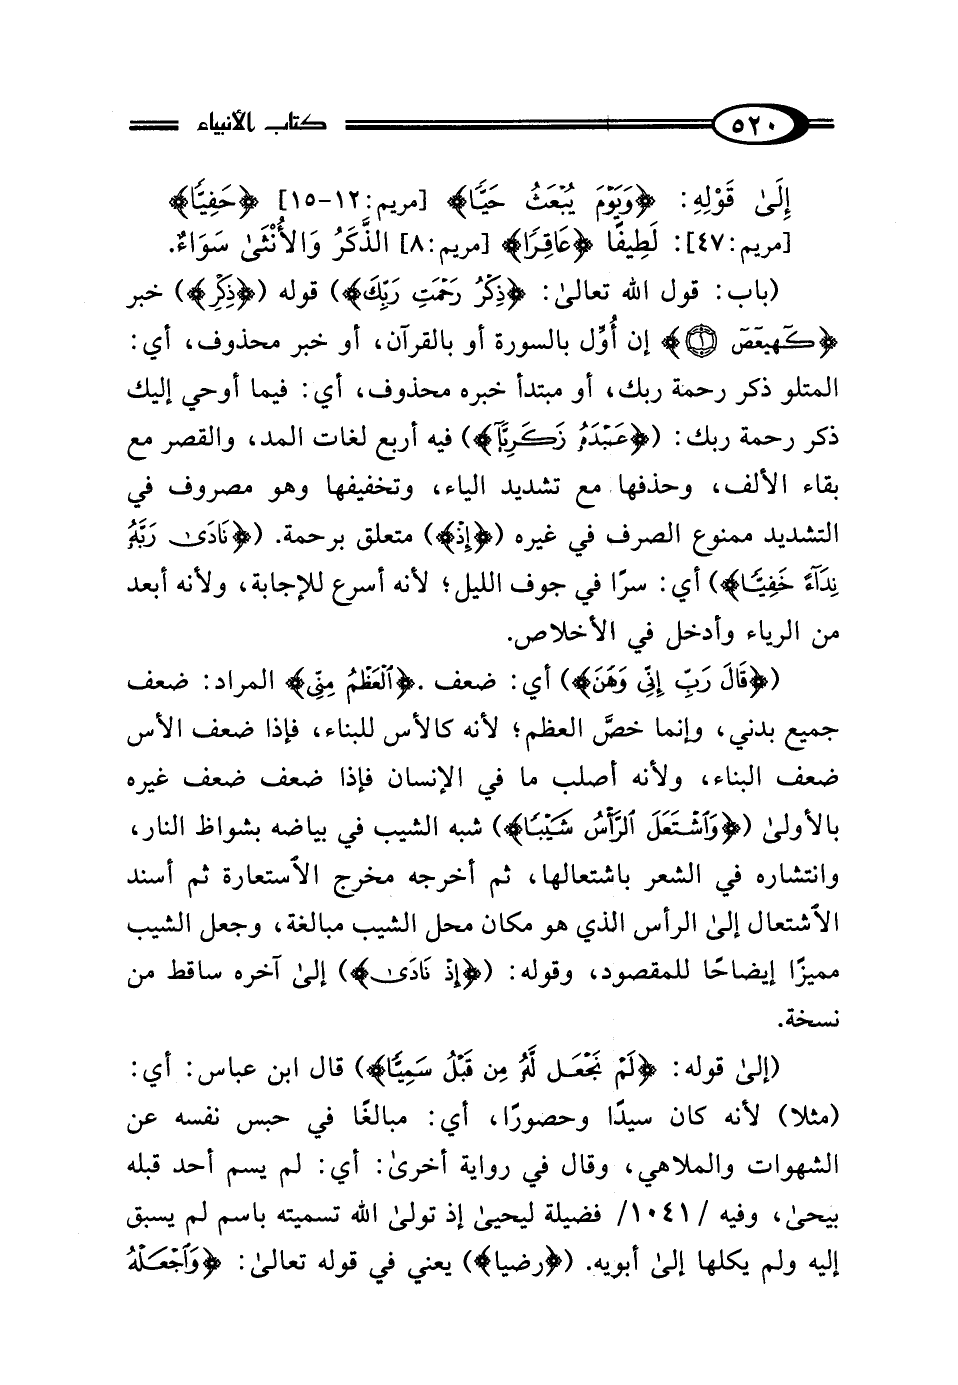 ٥٢٠ كتاب الأنبياء
إِلَىٰ قَوْلِهِ: ﴿وَيَوْمَ يُبْعَثُ حَيًّا﴾ [مريم:١٢-١٥] ﴿حَفِيًّا﴾
[مريم:٤٧]: لَطِيفًا ﴿عَاقِرًا﴾ [مريم:٨] الذَّكَرُ وَالأُنْثَىٰ سَوَاءٌ.
(باب: قول الله تعالىٰ: ﴿ذِكْرُ رَحْمَتِ رَبِّكَ﴾) قوله (﴿ذِكْرُ﴾) خبر
﴿كَهيعَصَ ١﴾ إن أُوِّل بالسورة أو بالقرآن، أو خبر محذوف، أي:
المتلو ذكر رحمة ربك، أو مبتدأ خبره محذوف، أي: فيما أوحي إليك
ذكر رحمة ربك: (﴿عَبْدَهُ زَكَرِيَّا﴾) فيه أربع لغات المد، والقصر مع
بقاء الألف، وحذفها مع تشديد الياء، وتخفيفها وهو مصروف في
التشديد ممنوع الصرف في غيره (﴿إِذْ﴾) متعلق برحمة. (﴿نَادَىٰ رَبَّهُ
نِدَآءً خَفِيًّا﴾) أي: سرًا في جوف الليل؛ لأنه أسرع للإجابة، ولأنه أبعد
من الرياء وأدخل في الأخلاص.
(﴿قَالَ رَبِّ إِنِّي وَهَنَ﴾) أي: ضعف .﴿ٱلْعَظْمُ مِنِّي﴾ المراد: ضعف
جميع بدني، وإنما خصَّ العظم؛ لأنه كالأس للبناء، فإذا ضعف الأس
ضعف البناء، ولأنه أصلب ما في الإنسان فإذا ضعف ضعف غيره
بالأولىٰ (﴿وَٱشْتَعَلَ ٱلرَّأْسُ شَيْبًا﴾) شبه الشيب في بياضه بشواظ النار،
وانتشاره في الشعر باشتعالها، ثم أخرجه مخرج الاَستعارة ثم أسند
الاَشتعال إلىٰ الرأس الذي هو مكان محل الشيب مبالغة، وجعل الشيب
مميزًا إيضاحًا للمقصود، وقوله: (﴿إِذْ نَادَىٰ﴾) إلىٰ آخره ساقط من
نسخة.
(إلىٰ قوله: ﴿لَمْ نَجْعَل لَّهُ مِن قَبْلُ سَمِيًّا﴾) قال ابن عباس: أي:
(مثلا) لأنه كان سيدًا وحصورًا، أي: مبالغًا في حبس نفسه عن
الشهوات والملاهي، وقال في رواية أخرىٰ: أي: لم يسم أحد قبله
بيحىٰ، وفيه /١٠٤١/ فضيلة ليحيىٰ إذ تولىٰ الله تسميته باسم لم يسبق
إليه ولم يكلها إلىٰ أبويه. (﴿رضيا﴾) يعني في قوله تعالىٰ: ﴿وَٱجْعَلْهُ